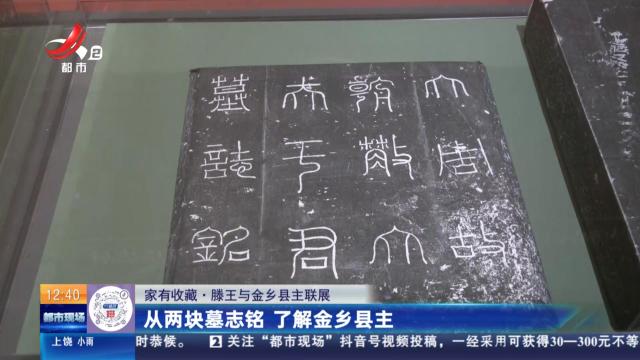 都市2
大周故
朝散大
夫于君
墓誌銘
12:40
都市现场
家有收藏·滕王与金乡县主联展
从两块墓志铭 了解金乡县主
上饶 小雨
时恭候。 2 关注“都市现场”抖音号视频投稿，一经采用可获得30—300元不等